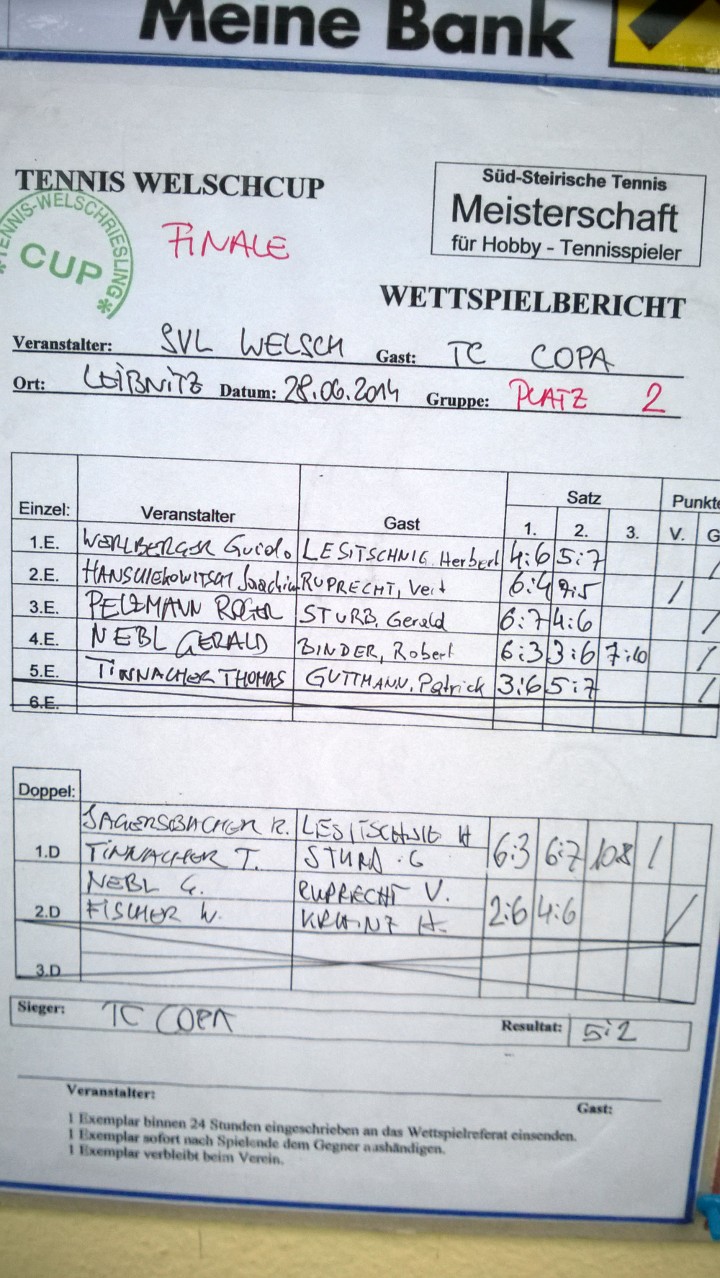 Meine Bank
TENNIS WELSCHCUP
*TENNIS-WELSCHRIESLING*
CUP
FINALE
Süd-Steirische Tennis
Meisterschaft
für Hobby - Tennisspieler
WETTSPIELBERICHT
Veranstalter: SVL WELSCH Gast: TC COPA
Ort: LEIBNITZ Datum: 28.06.2014 Gruppe: PLATZ 2
Einzel: Veranstalter Gast Satz Punkte
1. 2. 3. V. G
1.E. WERLBERGER Guido LESITSCHNIG Herbert 4:6 5:7 /
2.E. Joachim RUPRECHT, Veit 6:4 /
3.E. PELZMANN ROGER STURB, Gerald 6:7 4:6 /
4.E. NEBL GERALD BINDER, Robert 6:3 3:6 7:10 /
5.E. TINNACHER THOMAS GUTTMANN, Patrick 3:6 5:7 /
6.E.
Doppel:
R. LESITSCHNIG H
1.D TINNACHER T. G 6:3 6:7 10:8 /
NEBL G. RUPRECHT V.
2.D FISCHER W. KRAINZ H. 2:6 4:6 /
3.D
Sieger: TC COPA Resultat: 5:2
Veranstalter: Gast:
1 Exemplar binnen 24 Stunden eingeschrieben an das Wettspielreferat einsenden.
1 Exemplar sofort nach Spielende dem Gegner aushändigen.
1 Exemplar verbleibt beim Verein.